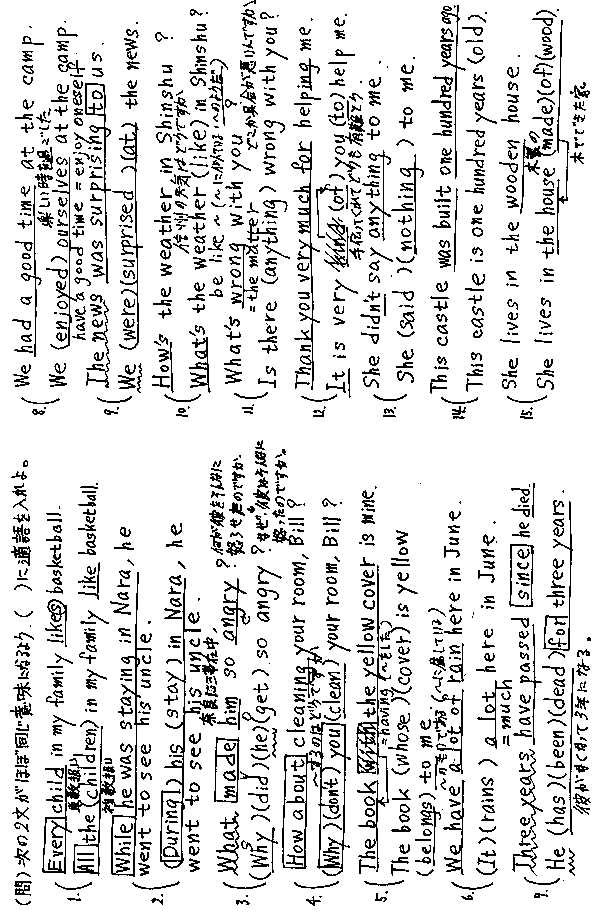 (問) 次の2文がほぼ同じ意味になるよう、( )に適語を入れよ。
1. Every child in my family likes basketball.
単数扱い
All the (children) in my family like basketball.
複数扱い
2. While he was staying in Nara, he
went to see his uncle.
(During) his (stay) in Nara, he
went to see his uncle.
奈良に滞在中
3. What made him so angry?
何が彼をそんなに
怒らせたのですか。
(Why)(did)(he)(get) so angry?
なぜ、彼はそんなに
怒ったのですか。
4. How about cleaning your room, Bill?
~するのはどうですか
(Why)(don't) you (clean) your room, Bill?
5. The book with the yellow cover is mine.
=having (~をもった)
The book (whose)(cover) is yellow
(belongs) to me.
~のものである (~に属している)
6. We have a lot of rain here in June.
(It)(rains) a lot here in June.
=much
7. Three years have passed since he died.
He (has)(been)(dead) for three years.
彼が亡くなって3年になる。
8. We had a good time at the camp.
楽しい時を過ごした
We (enjoyed) ourselves at the camp.
have a good time = enjoy oneself
9. The news was surprising to us.
We (were)(surprised)(at) the news.
10. How's the weather in Shinshu?
信州の天気はどうですか
What's the weather (like) in Shinshu?
be like ~ (~に似ている・~のようだ)
11. What's wrong with you?
=the matter
どこか具合が悪いんですか
Is there (anything) wrong with you?
12. Thank you very much for helping me.
It is very kind (of) you (to) help me.
手伝ってくれてどうも有難う
13. She didn't say anything to me.
She (said)(nothing) to me.
14. This castle was built one hundred years ago
This castle is one hundred years (old).
15. She lives in the wooden house.
木製の
She lives in the house (made)(of)(wood).
木でできた家